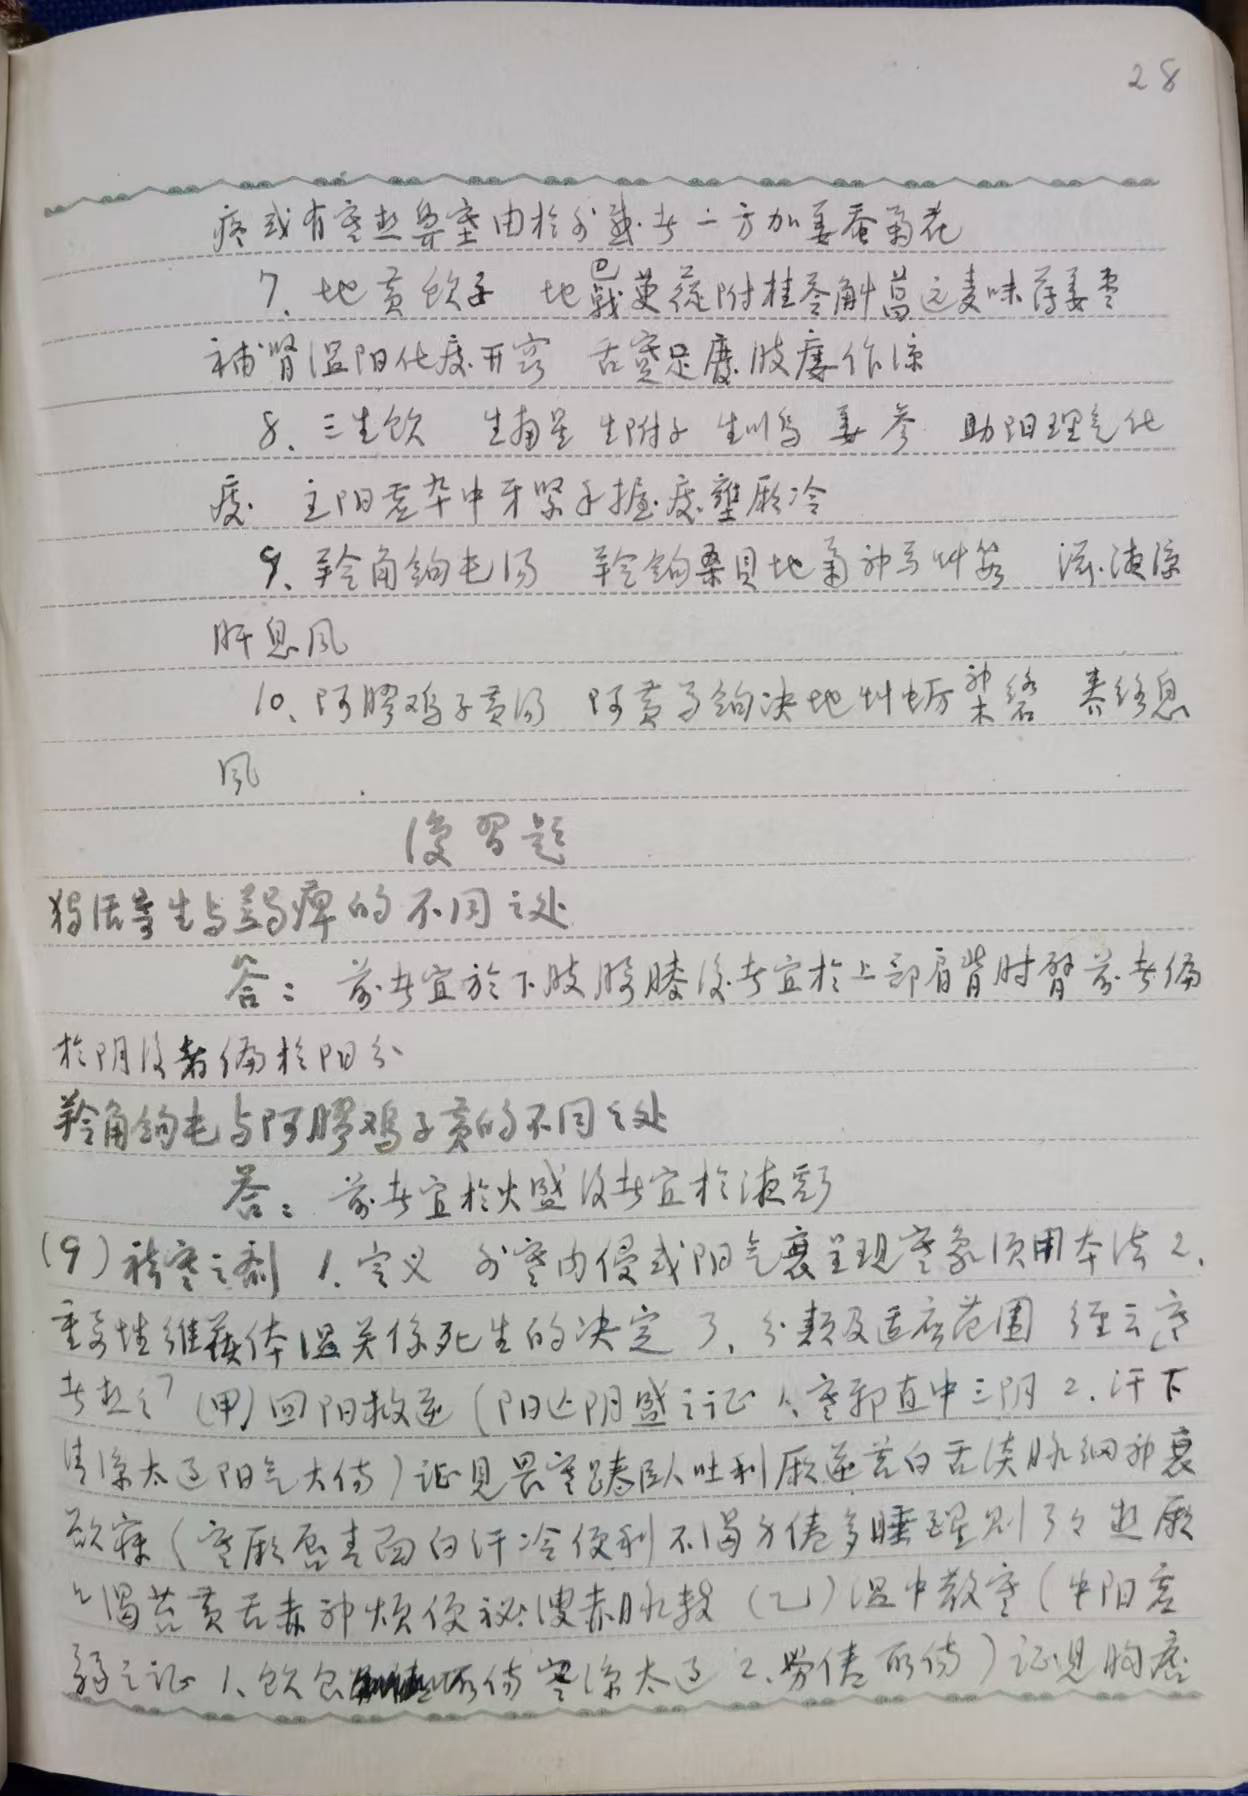 28
疼或有寒热鼻塞由於外感者二方加姜蚕菊花
7、地黄饮子 地巴戟苁蓉附桂苓斛菖远麦味薄姜枣
補腎温阳化痰开窍 舌瘖足废肢痿作凉
8、三生饮 生南星 生附子 生川乌 姜 参 助阳理气化
痰 主阳虚卒中牙紧手握痰壅厥冷
9、羚角鈎屯汤 羚鈎桑貝地菊神芍艸茹 滋液凉
肝息风
10、阿膠鸡子黄汤 阿黄芍鈎决地艸牡蛎神木络 养络息
风
復習题
独活寄生与蠲痺的不同之处
答： 前者宜於下肢胯膝後者宜於上部肩背肘臂前者偏
於阴後者偏於阳分
羚角鈎屯与阿膠鸡子黄的不同之处
答： 前者宜於火盛後者宜於液虧
(9) 祛寒之剂 1、定义 外寒内侵或阳气衰呈现寒象须用本法 2、
重要性维護体温关係死生的决定 3、分類及适应范围 经云寒
者热之 (甲)回阳救逆(阳亡阴盛之证 1、寒邪直中三阴 2、汗下
清凉太过阳气大伤)证见畏寒踡臥吐利厥逆苔白舌淡脉细神衰
欲寐(寒厥唇青面白汗冷便利不渴身倦多睡醒则了了 热厥
口渴苔黄舌赤神烦便祕溲赤脉数 (乙)温中散寒(中阳虚
弱之证 1、饮食所伤寒凉太过 2、劳倦所伤)证见胸痞